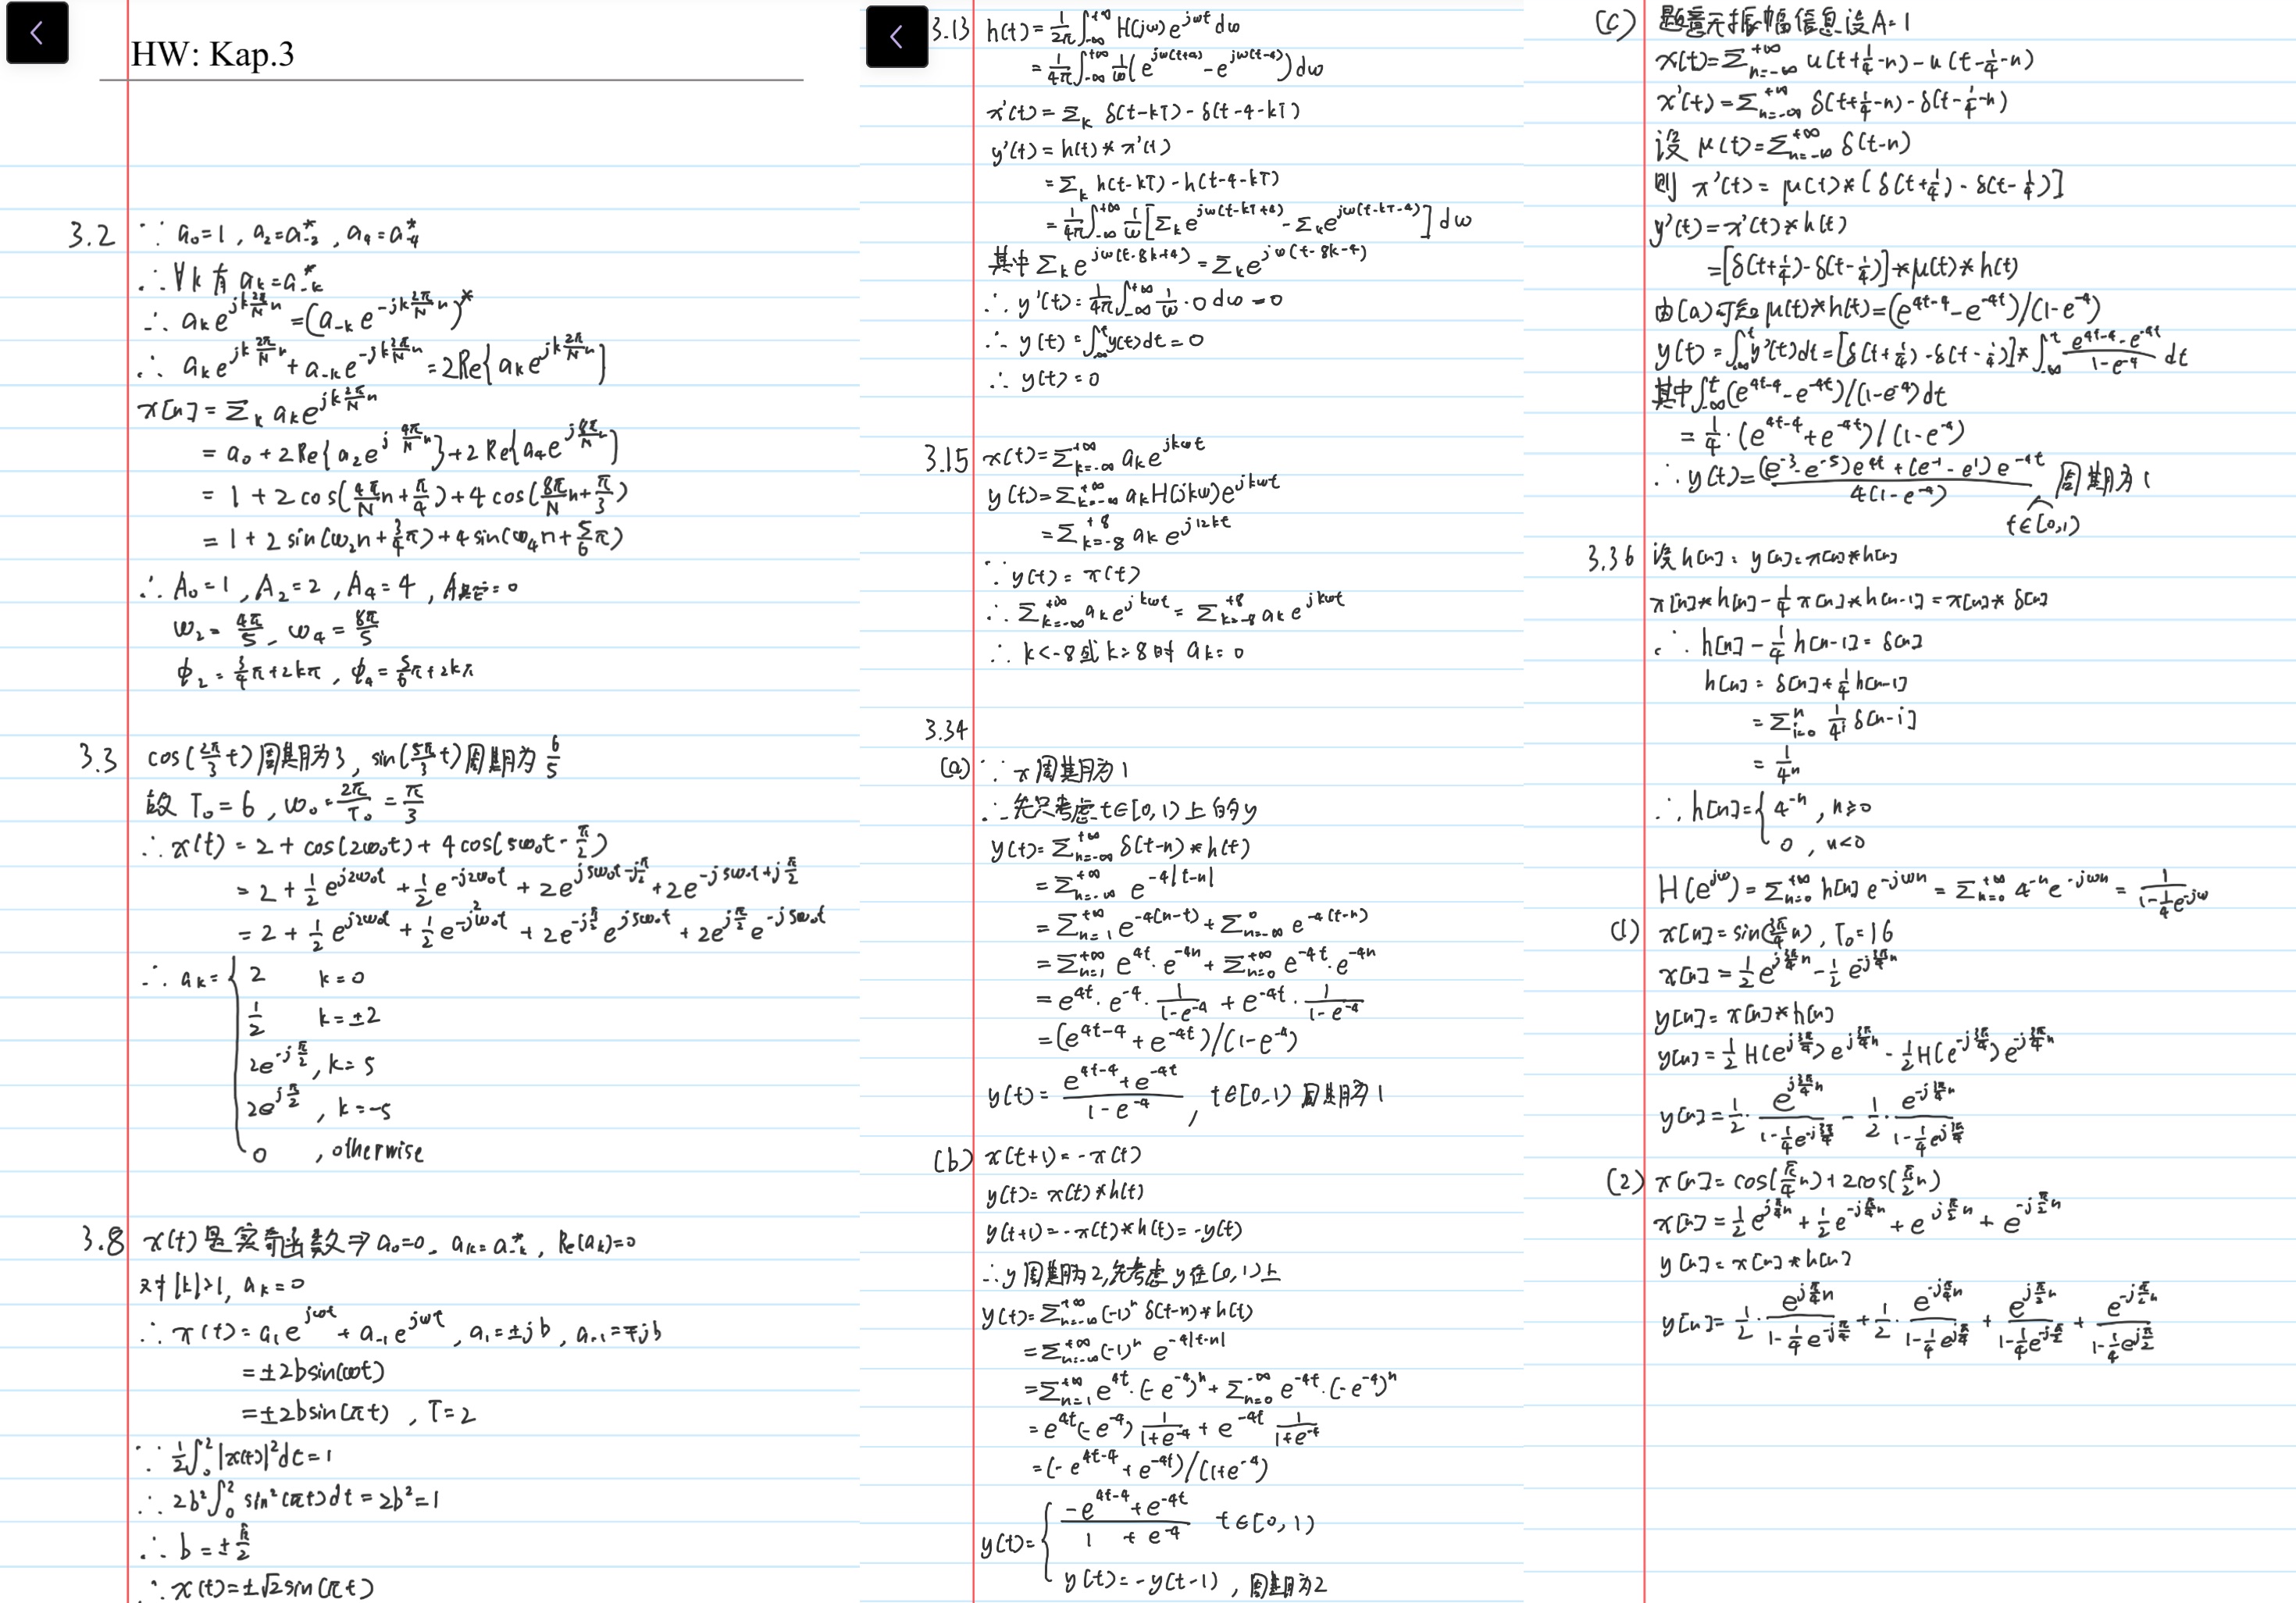 HW: Kap.3
3.2 ∵ a₀=1, a₂=a₋₂*, a₄=a₋₄*
∴ ∀k 有 aₖ=a₋ₖ*
∴ aₖe^{jk(2π/N)n} = (a₋ₖe^{-jk(2π/N)n})*
∴ aₖe^{jk(2π/N)n} + a₋ₖe^{-jk(2π/N)n} = 2Re{aₖe^{jk(2π/N)n}}
x[n] = Σₖ aₖe^{jk(2π/N)n}
= a₀ + 2Re{a₂e^{j(4π/N)n}} + 2Re{a₄e^{j(8π/N)n}}
= 1 + 2cos(4π/N n + π/4) + 4cos(8π/N n + π/3)
= 1 + 2sin(ω₂n + 3/4 π) + 4sin(ω₄n + 5/6 π)
∴ A₀=1, A₂=2, A₄=4, A其它=0
ω₂=4π/5, ω₄=8π/5
φ₂=3/4 π+2kπ, φ₄=5/6 π+2kπ
3.3 cos(2π/3 t)周期为3, sin(5π/3 t)周期为6/5
故 T₀=6, ω₀=2π/T₀=π/3
∴ x(t) = 2 + cos(2ω₀t) + 4cos(5ω₀t - π/2)
= 2 + 1/2 e^{j2ω₀t} + 1/2 e^{-j2ω₀t} + 2e^{j5ω₀t-jπ/2} + 2e^{-j5ω₀t+jπ/2}
= 2 + 1/2 e^{j2ω₀t} + 1/2 e^{-j2ω₀t} + 2e^{-jπ/2}e^{j5ω₀t} + 2e^{jπ/2}e^{-j5ω₀t}
∴ aₖ = { 2 k=0
1/2 k=±2
2e^{-jπ/2}, k=5
2e^{jπ/2}, k=-5
0, otherwise
3.8 x(t)是实奇函数⇒a₀=0, aₖ=a₋ₖ*, Re(aₖ)=0
对|k|>1, aₖ=0
∴ x(t) = a₁e^{jωt} + a₋₁e^{jωt}, a₁=±jb, a₋₁=∓jb
= ±2bsin(ωt)
= ±2bsin(πt), T=2
∵ 1/2 ∫₀² |x(t)|²dt=1
∴ 2b²∫₀² sin²(πt)dt = 2b²=1
∴ b = ±√2/2
∴ x(t)=±√2sin(πt)
3.13 h(t) = 1/2π ∫_{-∞}^{+∞} H(jω)e^{jωt}dω
= 1/4π ∫_{-∞}^{+∞} 1/ω (e^{jω(t+4)} - e^{jω(t-4)})dω
x'(t) = Σₖ δ(t-kT) - δ(t-4-kT)
y'(t) = h(t) * x'(t)
= Σₖ h(t-kT) - h(t-4-kT)
= 1/4π ∫_{-∞}^{+∞} 1/ω [Σₖe^{jω(t-kT+4)} - Σₖe^{jω(t-kT-4)}] dω
其中 Σₖe^{jω(t-8k+4)} = Σₖe^{jω(t-8k-4)}
∴ y'(t) = 1/4π ∫_{-∞}^{+∞} 1/ω · 0 dω = 0
∴ y(t) = ∫_{-∞}^{t} y(t)dt = 0
∴ y(t) = 0
3.15 x(t) = Σ_{k=-∞}^{+∞} aₖe^{jkωt}
y(t) = Σ_{k=-∞}^{+∞} aₖH(jkω)e^{jkωt}
= Σ_{k=-8}^{+8} aₖe^{j12kt}
∵ y(t) = x(t)
∴ Σ_{k=-∞}^{+∞} aₖe^{jkωt} = Σ_{k=-8}^{+8} aₖe^{jkωt}
∴ k<-8或k>8时 aₖ=0
3.34
(a) ∵ x周期为1
∴ 先只考虑t∈[0,1)上的y
y(t) = Σ_{n=-∞}^{+∞} δ(t-n) * h(t)
= Σ_{n=-∞}^{+∞} e^{-4|t-n|}
= Σ_{n=1}^{+∞} e^{-4(n-t)} + Σ_{n=-∞}^{0} e^{-4(t-n)}
= Σ_{n=1}^{+∞} e^{4t}·e^{-4n} + Σ_{n=0}^{+∞} e^{-4t}·e^{-4n}
= e^{4t}·e^{-4}·1/(1-e^{-4}) + e^{-4t}·1/(1-e^{-4})
= (e^{4t-4}+e^{-4t})/(1-e^{-4})
y(t) = (e^{4t-4}+e^{-4t})/(1-e^{-4}), t∈[0,1) 周期为1
(b) x(t+1) = -x(t)
y(t) = x(t)*h(t)
y(t+1) = -x(t)*h(t) = -y(t)
∴ y周期为2,先考虑y在[0,1)上
y(t) = Σ_{n=-∞}^{+∞} (-1)ⁿ δ(t-n)*h(t)
= Σ_{n=-∞}^{+∞} (-1)ⁿ e^{-4|t-n|}
= Σ_{n=1}^{+∞} e^{4t}·(-e^{-4})ⁿ + Σ_{n=0}^{-∞} e^{-4t}·(-e^{-4})ⁿ
= e^{4t}(-e^{-4}) 1/(1+e^{-4}) + e^{-4t} 1/(1+e^{-4})
= (-e^{4t-4}+e^{-4t})/(1+e^{-4})
y(t) = { (-e^{4t-4}+e^{-4t})/(1+e^{-4}) t∈[0,1)
y(t)=-y(t-1), 周期为2
(c) 题意无振幅信息设A=1
x(t) = Σ_{n=-∞}^{+∞} u(t+1/4-n) - u(t-1/4-n)
x'(t) = Σ_{n=-∞}^{+∞} δ(t+1/4-n) - δ(t-1/4-n)
设 μ(t) = Σ_{n=-∞}^{+∞} δ(t-n)
则 x'(t) = μ(t)*[δ(t+1/4) - δ(t-1/4)]
y'(t) = x'(t)*h(t)
= [δ(t+1/4) - δ(t-1/4)]*μ(t)*h(t)
由(a)可知 μ(t)*h(t) = (e^{4t-4}-e^{-4t})/(1-e^{-4})
y(t) = ∫_{-∞}^{t} y'(t)dt = [δ(t+1/4) - δ(t-1/4)]*∫_{-∞}^{t} (e^{4t-4}-e^{-4t})/(1-e^{-4}) dt
其中∫_{-∞}^{t} (e^{4t-4}-e^{-4t})/(1-e^{-4})dt
= 1/4·(e^{4t-4}+e^{-4t})/(1-e^{-4})
∴ y(t) = ((e^{-3}-e^{-5})e^{4t}+(e^{-1}-e^{1})e^{-4t})/(4(1-e^{-4})) 周期为1
t∈[0,1)
3.36 设h[n]: y[n]=x[n]*h[n]
x[n]*h[n] - 1/4 x[n]*h[n-1] = x[n]*δ[n]
∴ h[n] - 1/4 h[n-1] = δ[n]
h[n] = δ[n] + 1/4 h[n-1]
= Σ_{i=0}^{n} 1/4ⁱ δ[n-i]
= 1/4ⁿ
∴ h[n] = { 4⁻ⁿ, n≥0
0, n<0
H(e^{jω}) = Σ_{n=0}^{+∞} h[n]e^{-jωn} = Σ_{n=0}^{+∞} 4⁻ⁿe^{-jωn} = 1/(1-1/4 e^{-jω})
(1) x[n] = sin(3π/4 n), T₀=16
x[n] = 1/2 e^{j3π/4 n} - 1/2 e^{-j3π/4 n}
y[n] = x[n]*h[n]
y[n] = 1/2 H(e^{j3π/4})e^{j3π/4 n} - 1/2 H(e^{-j3π/4})e^{-j3π/4 n}
y[n] = 1/2 · e^{j3π/4 n}/(1-1/4 e^{-j3π/4}) - 1/2 · e^{-j3π/4 n}/(1-1/4 e^{j3π/4})
(2) x[n] = cos(π/4 n) + 2cos(π/2 n)
x[n] = 1/2 e^{jπ/4 n} + 1/2 e^{-jπ/4 n} + e^{jπ/2 n} + e^{-jπ/2 n}
y[n] = x[n]*h[n]
y[n] = 1/2 · e^{jπ/4 n}/(1-1/4 e^{-jπ/4}) + 1/2 · e^{-jπ/4 n}/(1-1/4 e^{jπ/4}) + e^{jπ/2 n}/(1-1/4 e^{-jπ/2}) + e^{-jπ/2 n}/(1-1/4 e^{jπ/2})